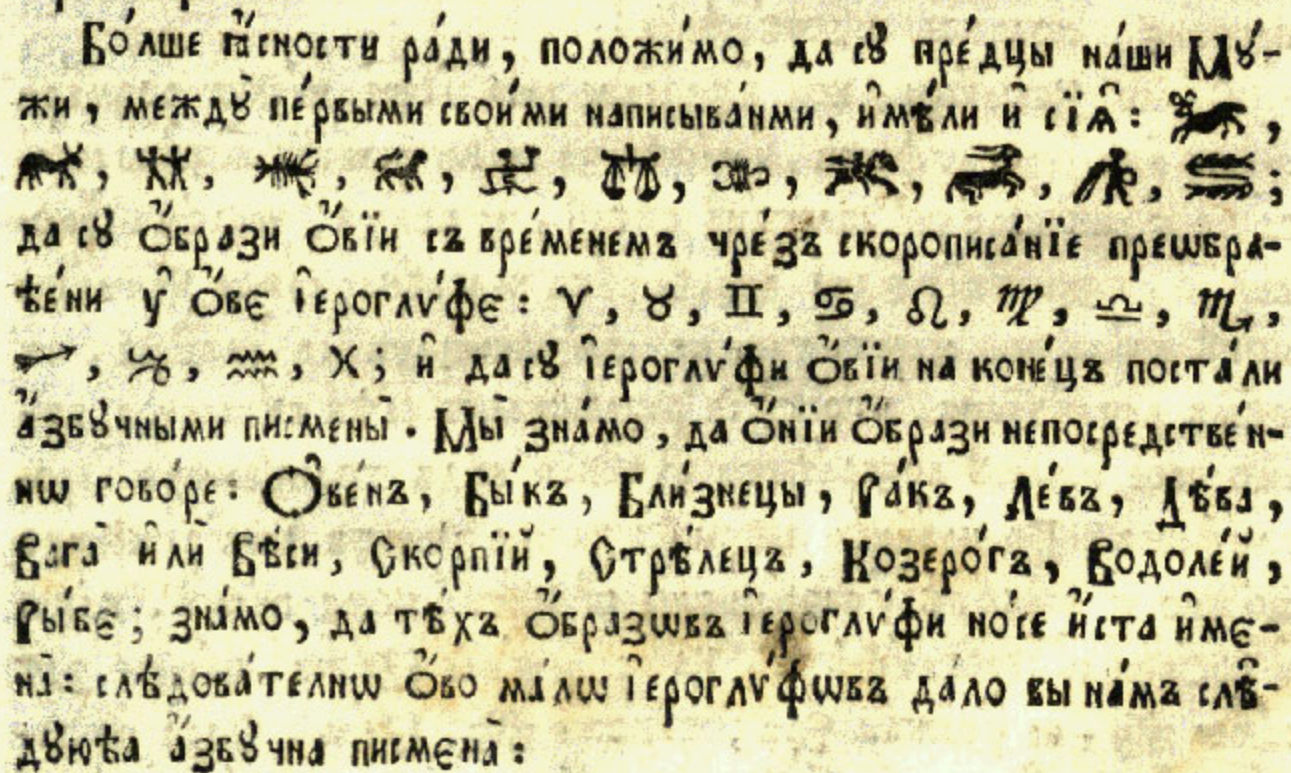 Бо́лше ꙗ҆́сности ра́ди, положи́мо, да сꙋ̀ пре́дцы на́ши Мꙋ́-
жи, междꙋ̀ пе́рвыми свои́ми написыва́нми, и҆мѣ́ли и҆ сїѧ̑: ,
, , , , , , , , , , ;
да сꙋ ѻ҆́брази ѻ҆́вїи съ вре́менемъ чре́зъ скорописа́нїе преѡбра-
ѣе́ни у҆̀ ѻ҆́вє і҆ероглѵ́фє: ♈, ♉, ♊, ♋, ♌, ♍, ♎, ♏,
♐, ♑, ♒, ♓; и҆ да сꙋ̀ і҆ероглѵ́фи ѻ҆́вїи на коне́цъ поста́ли
а҆́збꙋчными писмены̀. Мы̀ зна́мо, да ѻ҆́нїи ѻ҆́брази непосредстве́н-
нѡ говоре́: Ѻ҆ве́нъ, Бы́къ, Бли́знецы, Ра́къ, Ле́въ, Дѣ́ва,
Вага̀ и҆лѝ Вѣ́си, Ско́рпїй, Стрѣ́лецъ, Козеро́гъ, Водоле́й,
Ры́бє; зна́мо, да тѣ́хъ ѻ҆́бразѡвъ і҆ероглѵ́фи но́се и҆́ста и҆мє-
на̀: слѣ́дователнѡ ѻ҆́во ма́лѡ і҆ероглѵ́фѡвъ да́ло вы на́мъ слѣ̑-
дꙋюѣа а҆́збꙋчна писмєна̀: